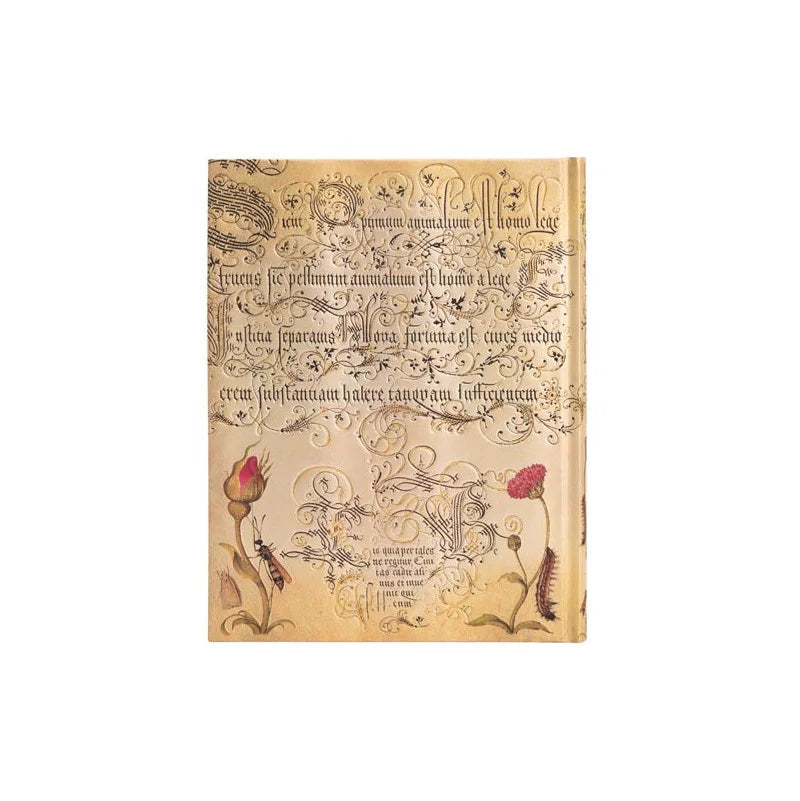 Sicut Optimum animalium est homo lege
fruens sic pessimum animalium est homo a lege E
Iustitia separatus Nova fortuna est cives medio
crem substantiam habere tanquam sufficientem
is quia per tales
ne regitur Civi
tas cadit
nus et inve
nit qui
eum